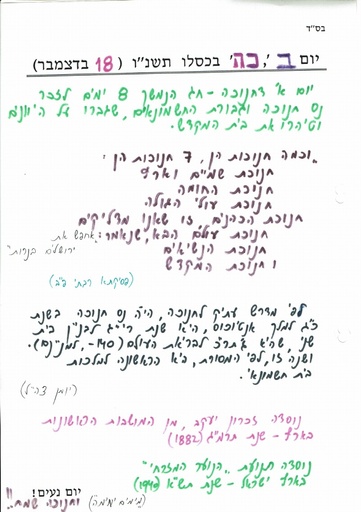 בס"ד
יום ב', כה' בכסלו תשנ"ו (18 בדצמבר)
יום א' דחנוכה - חג הנמשך 8 ימים לזכר
נס חנוכה וגבורת החשמונאים, שגברו על היוונים
וטיהרו את בית המקדש.
"וכמה חנוכות הן, 7 חנוכות הן:
חנוכת שמים וארץ
חנוכת החומה
חנוכת עולי הגולה
חנוכת הכהנים, זו שאנו מדליקים
חנוכת עולם הבא, שנאמר: אחפש את
ירושלים בנרות"
חנוכת הנשיאים
וחנוכת המקדש
(פסיקתא רבתי פ"ב)
לפי מדרש עתיק לחנוכה, היה נס חנוכה בשנת
כ"ג למלך אנטיוכוס, היא שנת רי"ג לבנין בית
שני, שהיא ג'תרצ"ב לבריאת העולם (140-, למנינם).
ושנה זו, לפי המסורת, היא הראשונה למלכות
בית חשמונאי.
(יומן צה"ל)
נוסדה זכרון יעקב, מן המושבות הראשונות
בארץ - שנת תרמ"ג (1882)
נוסדה תנועת "הנוער המזרחי"
בארץ ישראל - שנת תש"א (1940)
יום נעים!
וחנוכה שמח!!